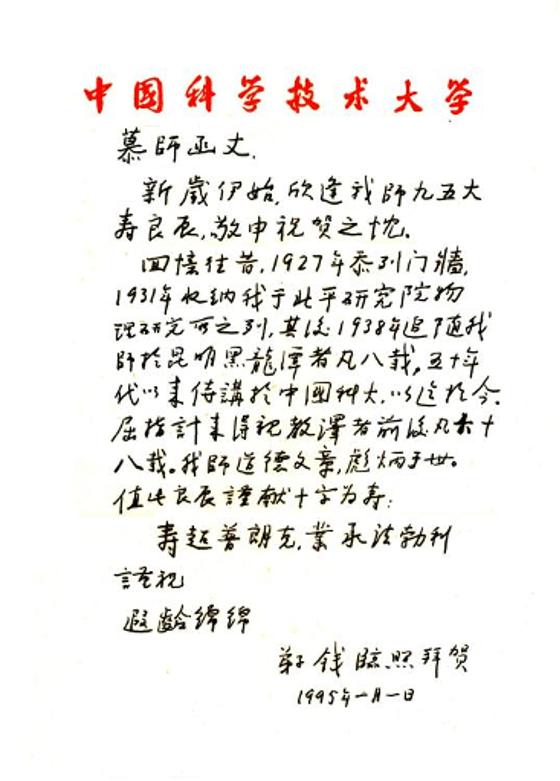 中国科学技术大学
慕師函丈.
新歲伊始,欣逢我師九五大
寿良辰,敬申祝贺之忱.
回憶往昔,1927年忝列门牆,
1931年收纳我于北平研究院物
理研究所之列,其後1938年追随我
師於昆明黑龍潭者凡八载,五十年
代以来侍講於中國科大,以迄於今.
屈指計来得親教澤者前後凡六十
八载。我師道德文章,彪炳于世。
值此良辰謹献十字为寿:
寿超普朗克,業承法勃利
謹祝
遐齡绵绵
弟子 钱臨照 拜贺
1995年一月一日